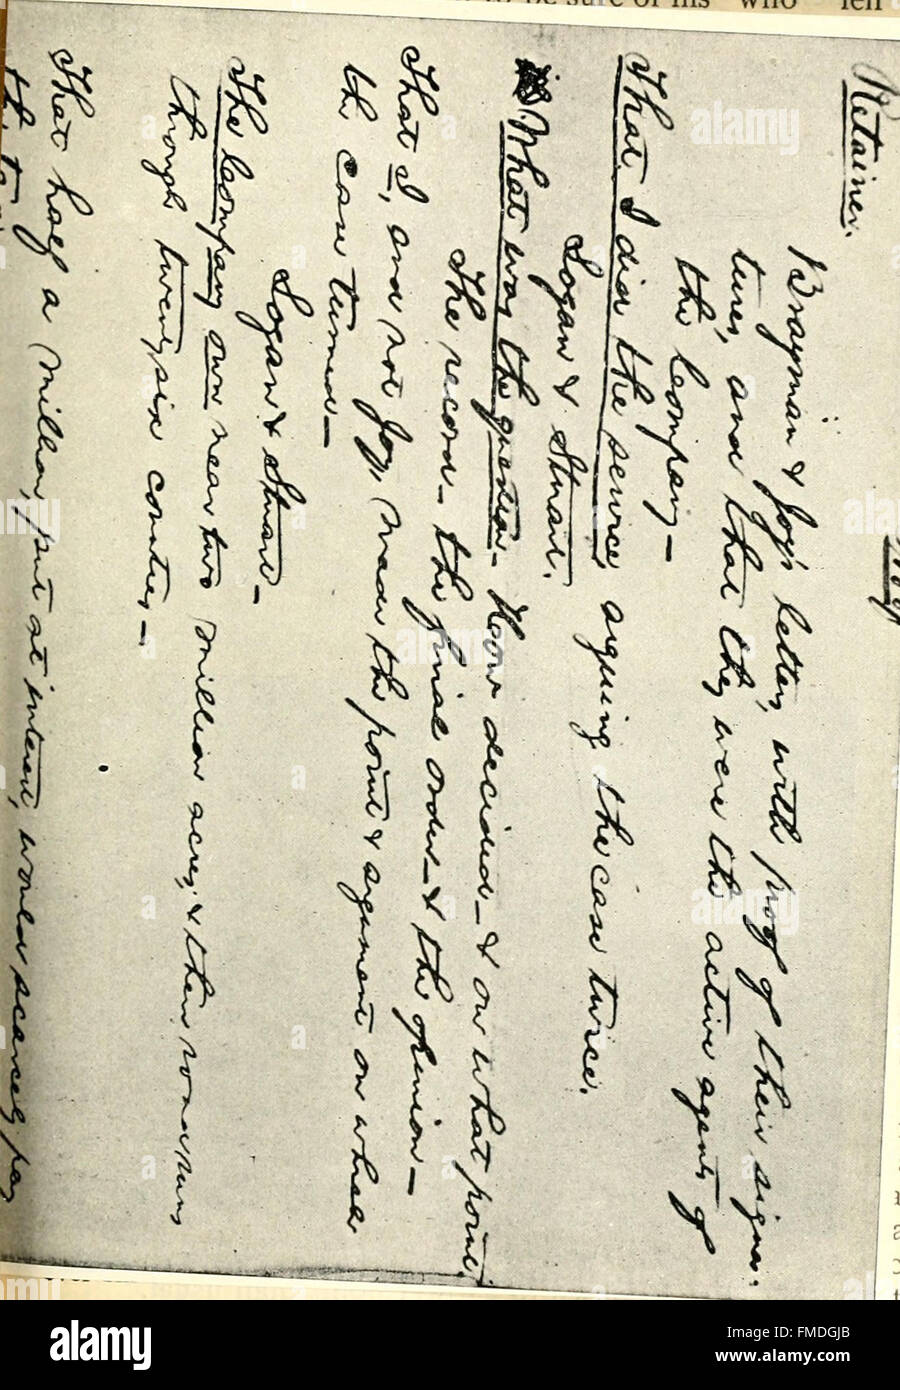 to be sure of his "who
Retainer.
Brayman & Joy's letters, with proof of their signa-
tures, and that they were the active agents of
the Company—
That I did the service arguing the case twice.
Logan & Stuart.
What was the question— How decided— & on what point.
The record— the final order— & the opinion—
That I, and not Joy, made the point & argument on which
the case turned—
Logan & Stuart—
The Company own near two million acres, & their road runs
through twenty six counties—
That half a million, put at interest, would scarcely pay
alamy
Image ID: FMDGJB
www.alamy.com